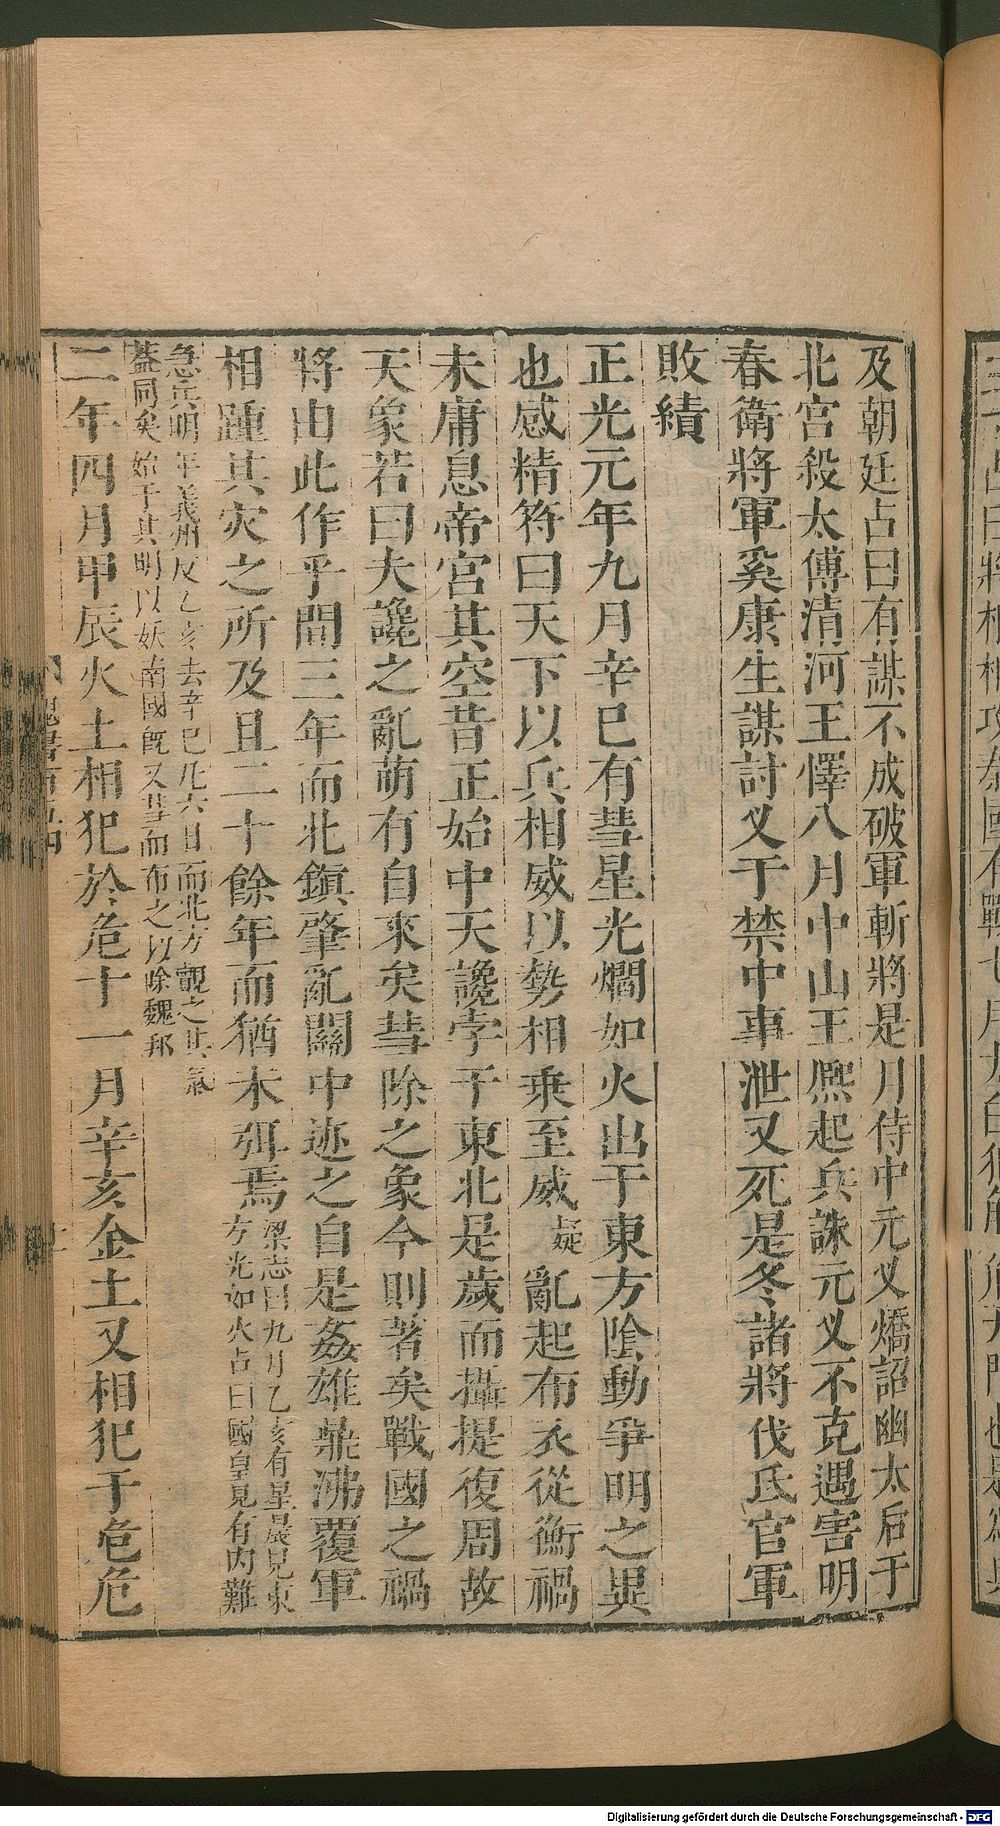 及朝廷占曰有謀不成破軍斬將是月侍中元乂矯詔幽太后于
北宮殺太傅清河王懌八月中山王熈起兵誅元乂不克遇害明
春衛將軍奚康生謀討乂于禁中事泄又死是冬諸將伐氐官軍
敗績
正光元年九月辛巳有彗星光爓如火出于東方陰動爭明之異
也感精符曰天下以兵相威以勢相乘至威疑亂起布衣從衡禍
未庸息帝宮其空昔正始中天讒孛于東北是歲而攝提復周故
天象若曰夫讒之亂萌有自來矣彗除之象今則著矣戰國之禍
將由此作乎間三年而北鎮肇亂關中迹之自是姦雄鼎沸覆軍
相踵其灾之所及且二十餘年而猶未弭焉
梁志曰九月乙亥有星晨見東
方光如火占曰國皇見有內難
急兵明年義州反乙亥去辛巳凡六日而北方觀之其氣
益同矣始于其明以妖南國既又彗而布之以除魏邦
二年四月甲辰火土相犯於危十一月辛亥金土又相犯于危危
魏書百五四
Digitalisierung gefördert durch die Deutsche Forschungsgemeinschaft - DFG